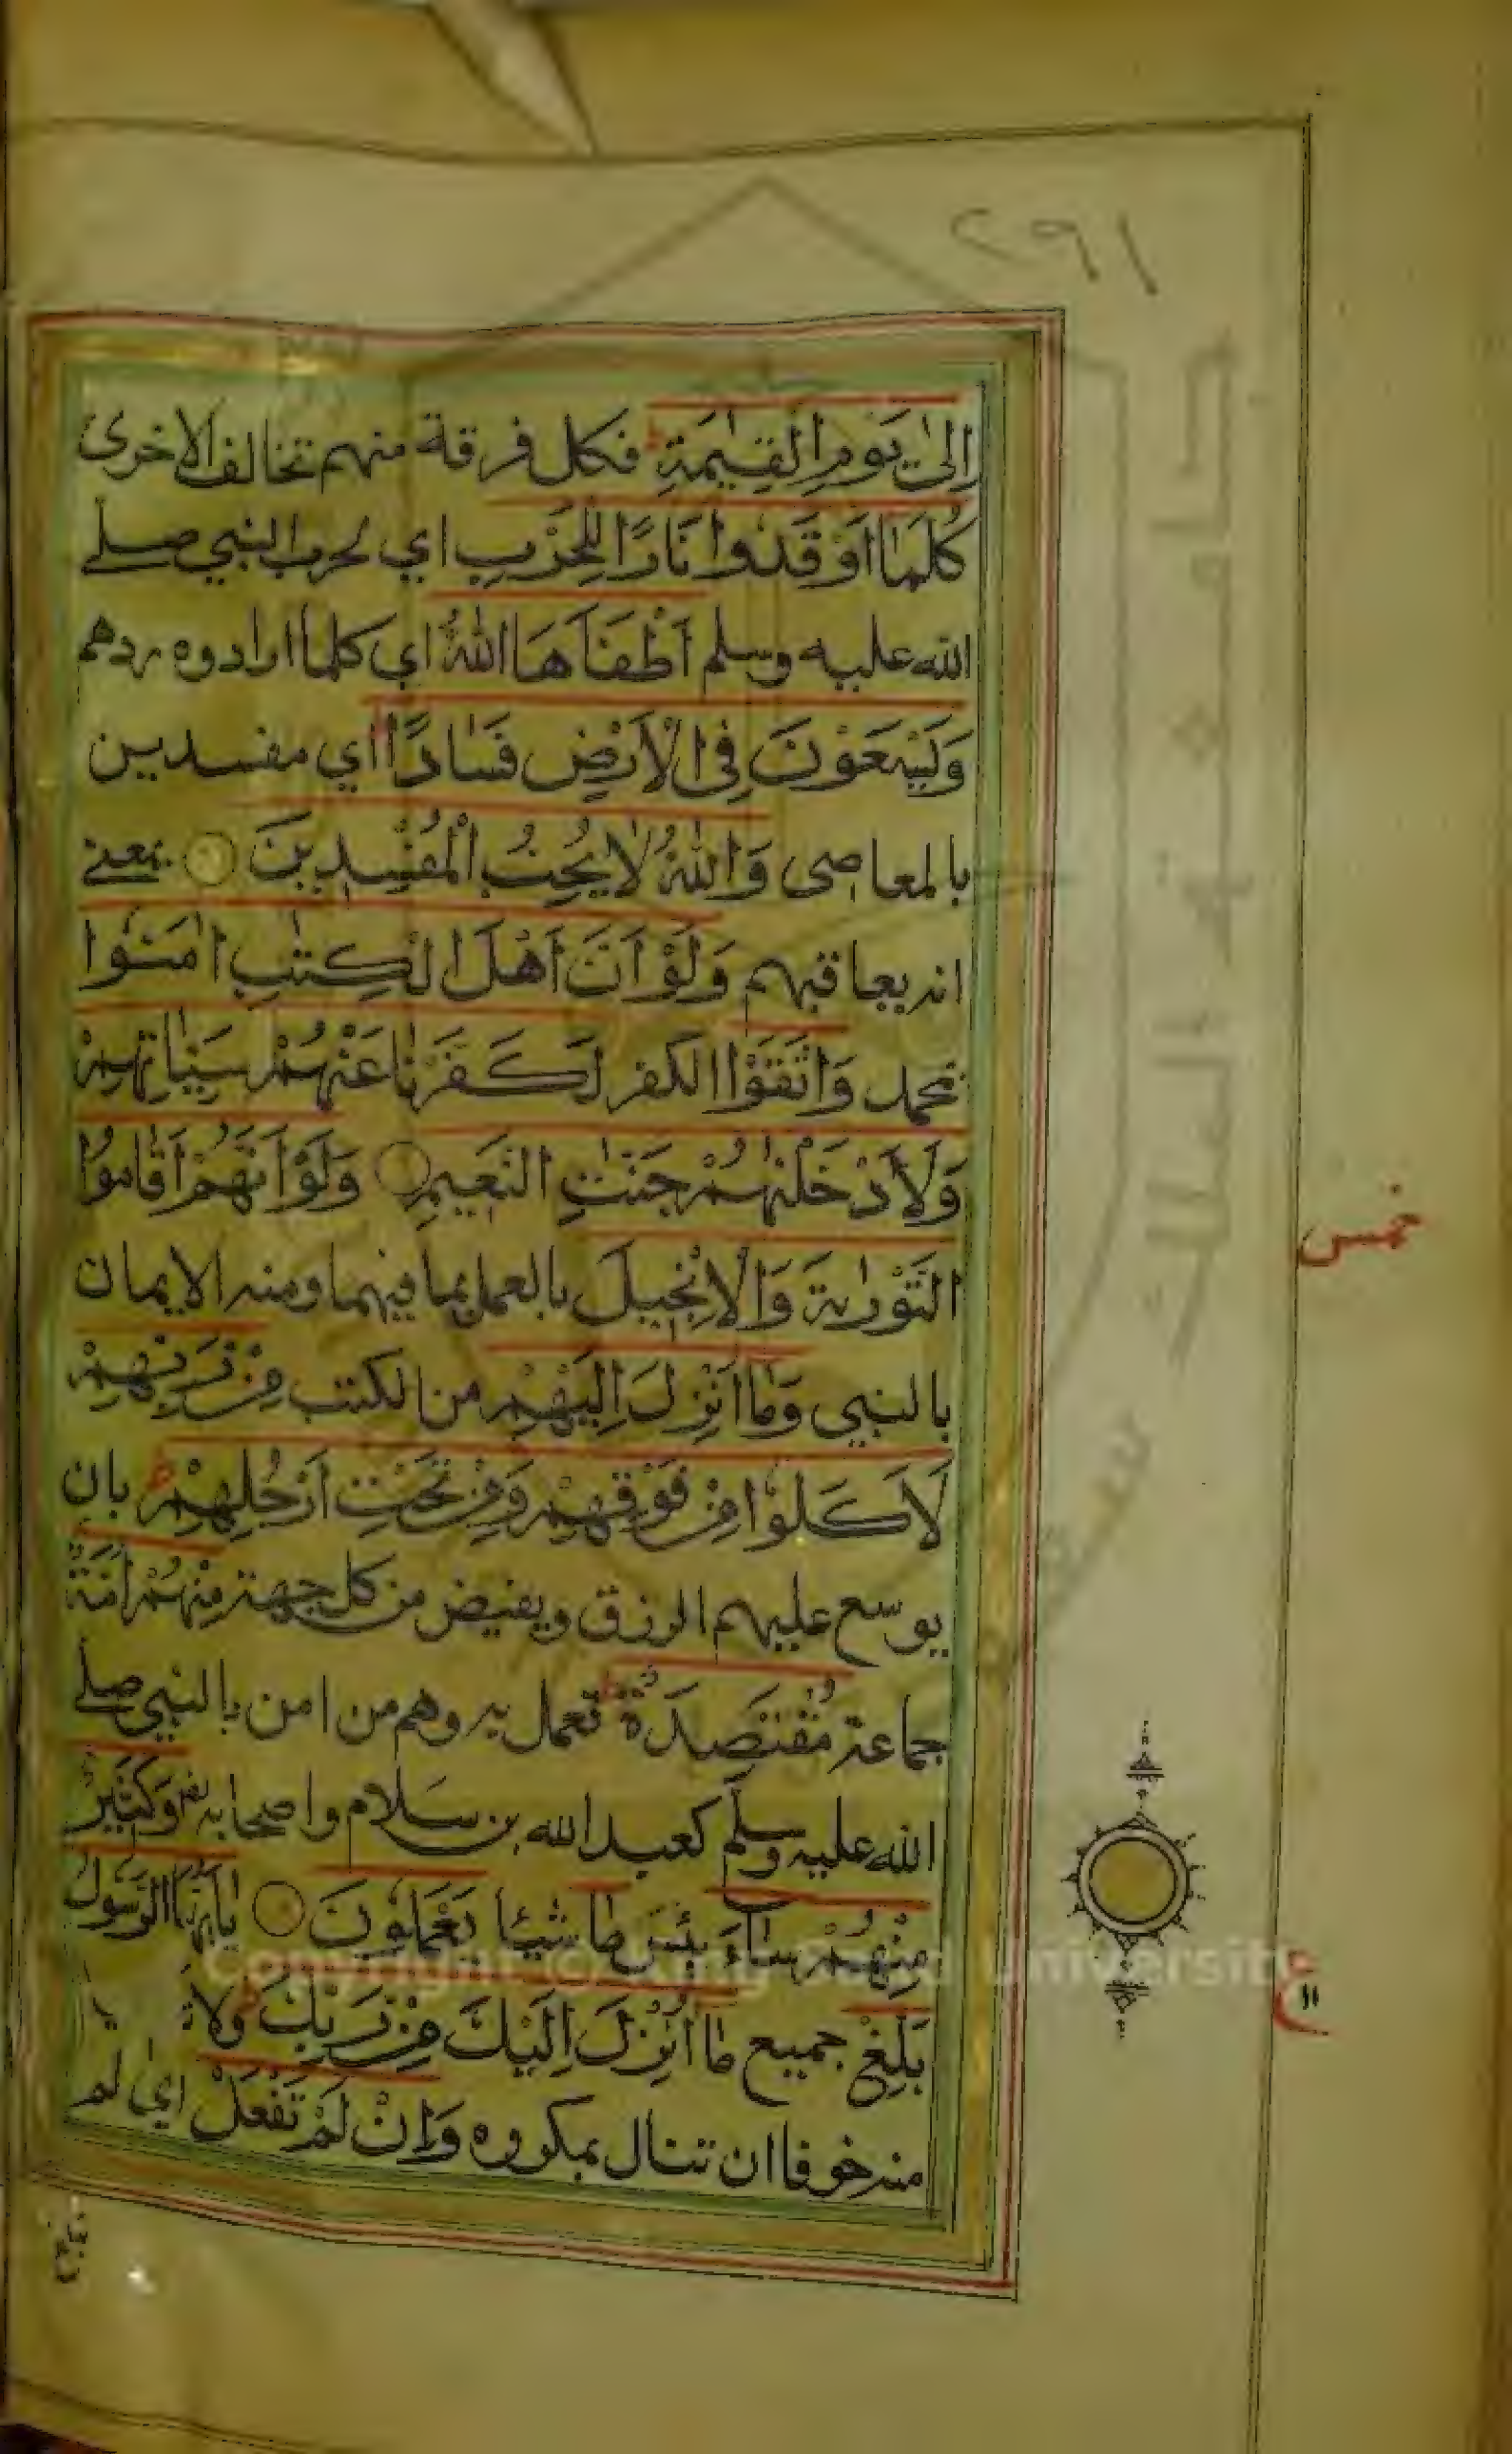 ١٩٢
اِلٰى يَوْمِ الْقِيٰمَةِ ط فكل فرقة منهم تخالف الاخرى
كُلَّمَا اَوْقَدُوا نَارًا لِلْحَرْبِ اي لحرب النبي صلے
الله عليه وسلم اَطْفَاَهَا اللّٰهُ اي كلما ارادوه ردهم
وَيَسْعَوْنَ فِى الْاَرْضِ فَسَادًا اي مفسدين
بالمعاصى وَاللّٰهُ لَا يُحِبُّ الْمُفْسِدِيْنَ بمعنے
انه يعاقبهم وَلَوْ اَنَّ اَهْلَ الْكِتٰبِ اٰمَنُوْا
بمحمد وَاتَّقَوْا الكفر لَكَفَّرْنَا عَنْهُمْ سَيِّاٰتِهِمْ
وَلَاَدْخَلْنٰهُمْ جَنّٰتِ النَّعِيْمِ وَلَوْ اَنَّهُمْ اَقَامُوا
التَّوْرٰىةَ وَالْاِنْجِيْلَ بالعمل بما فيهما ومنه الايمان
بالنبي وَمَا اُنْزِلَ اِلَيْهِمْ من الكتب مِنْ رَبِّهِمْ
لَاَكَلُوْا مِنْ فَوْقِهِمْ وَمِنْ تَحْتِ اَرْجُلِهِمْ ط بان
يوسع عليهم الرزق ويفيض من كل جهة مِنْهُمْ اُمَّةٌ
جماعة مُقْتَصِدَةٌ ط تعمل به وهم من امن بالنبي صلے
الله عليه وسلم كعبد الله بن سلام واصحابه وَكَثِيْرٌ
مِنْهُمْ سَآءَ بئس مَا شيئا يَعْمَلُوْنَ يٰاَيُّهَا الرَّسُوْلُ
بَلِّغْ جميع مَا اُنْزِلَ اِلَيْكَ مِنْ رَبِّكَ ط ولا
منه خوفا ان تنال بمكروه وَاِنْ لَمْ تَفْعَلْ اي لم
خمس
ع
١١
Copyright © King Saud University